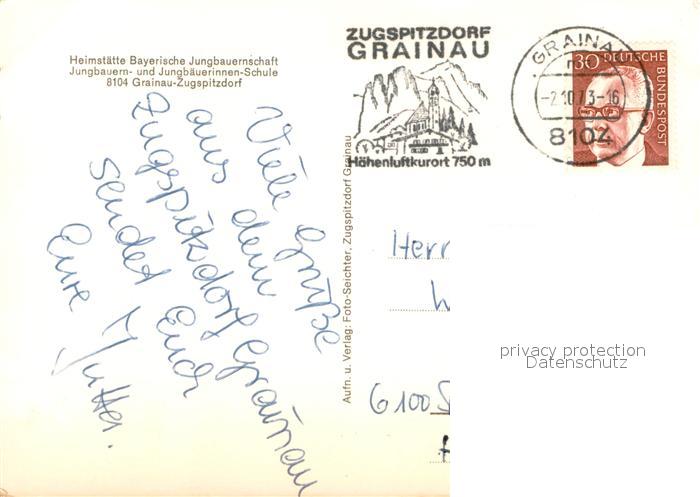 Heimstätte Bayerische Jungbauernschaft
Jungbauern- und Jungbäuerinnen-Schule
8104 Grainau-Zugspitzdorf
Viele Grüße
aus dem
Zugspitzdorf Grainau
sendet Euch
Eure Mutter.
Aufn. u. Verlag: Foto-Seichter, Zugspitzdorf Grainau
ZUGSPITZDORF
GRAINAU
Höhenluftkurort 750 m
GRAINAU
-2.10.73-16
8104
30 DEUTSCHE BUNDESPOST
Herr
6100
privacy protection
Datenschutz